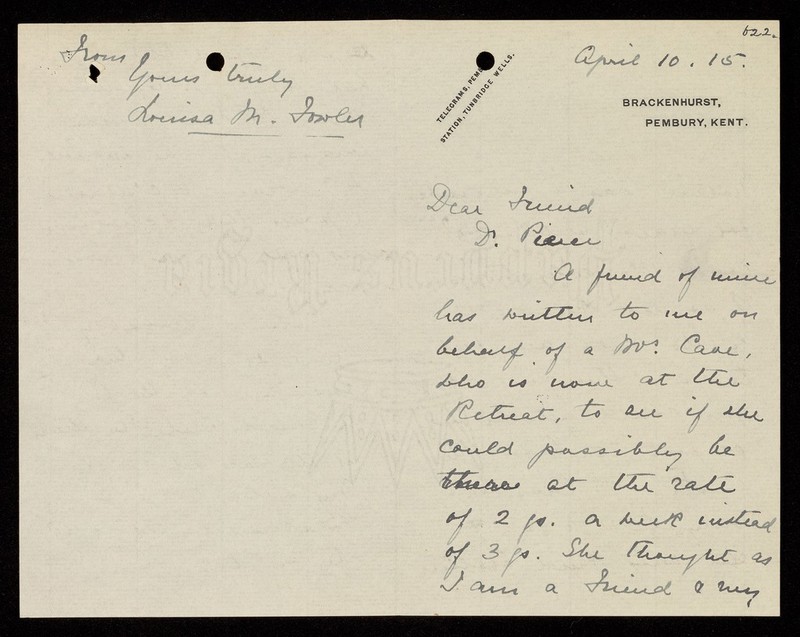 622.
April 10. 15.
TELEGRAMS, PEMB
STATION, TUNBRIDGE WELLS.
BRACKENHURST,
PEMBURY, KENT.
Dear Friend
Dr. Pierce
A friend of mine
has written to me on
behalf of a Mrs. Cave,
who is now at the
Retreat, to see if she
could possibly be
there at the rate
of 2 gs. a week instead
of 3 gs. She thought as
I am a Friend & my
From
Yours truly
Louisa M. Fowler